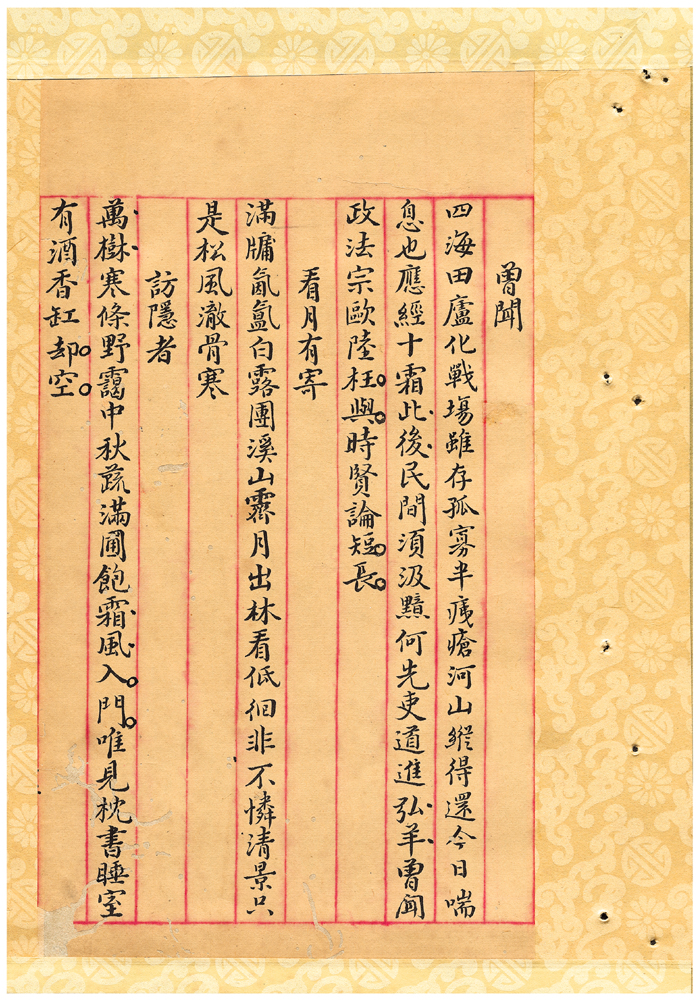 曾聞
四海田廬化戰場雖存孤寡半痍瘡河山縱得還今日喘
息也應經十霜此後民間須汲黯何先吏道進弘羊曾聞
政法宗歐陸枉與時賢論短長
看月有寄
滿牗氤氳白露團溪山霽月出林看低徊非不憐清景只
是松風澈骨寒
訪隱者
萬樹寒條野靄中秋蔬滿圃飽霜風入門唯見枕書睡室
有酒香缸却空